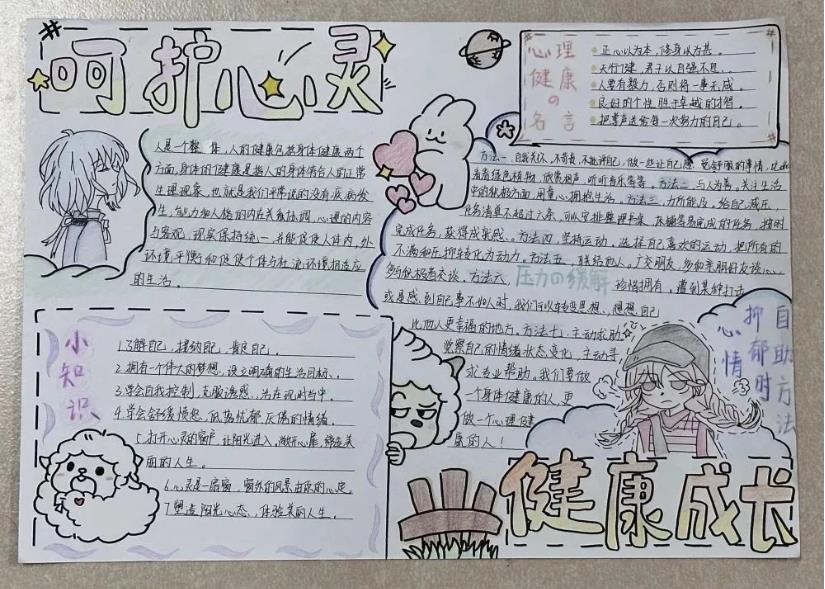 呵护心灵
心理
健康
の
名言
正心以为本，修身以为基。
天行健，君子以自强不息。
人要有毅力，否则将一事无成。
良好的个性胜于卓越的才智。
把掌声送给每一次努力的自己。
人是一个整体，人的健康包括身体健康两个
方面，身体的健康是指人的身体需合人的正常
生理现象，也就是我们平常说的没有疾病发
生，能力和人格的内在关系协调，心理的内容
与客观，现实保持统一，并能促使人体内，外
环境平衡和促使个体与社会环境相适应
的生活。
方法一：自我关怀，不苛责，不批评自己，做一些让自己感觉舒服的事情，比如
看看绿色植物，欣赏相声，听听音乐等等。方法二：与人为善，关注生活
中的积极方面，用童心拥抱生活。方法三：力所能及，给自己减压，
任务清单不超过六条，可以安排整理书桌，床铺等易完成的任务，按时
完成任务，获得成就感。方法四：坚持运动，选择自己喜欢的运动，把所有的
不满和压抑转化为动力。方法五：联结他人，广交朋友，多和亲朋好友谈心，
多和积极者交谈。方法六：
压力の缓解
珍惜拥有，遭到某种打击
或是感到自己事不如人时，我们可以转变思想，想想自己
比他人更幸福的地方。方法七：主动求助，
觉察自己的情绪状态变化，主动寻
求专业帮助，我们要做
一个身体健康的人，更
做一个心理健
康的人！
心情
抑郁时
自助方法
小知识
1.了解自己，接纳自己，肯定自己。
2.拥有一个伟大的梦想，设立明确的生活目标。
3.学会自我控制，克服诱惑，活在现时当中。
4.学会舒缓愤怒，低落忧郁，厌倦的情绪。
5.打开心灵的窗户，让阳光进入，敞开心扉，缔造美
丽的人生。
6.心灵是一扇窗，窗外的风景由你的心定。
7.塑造阳光心态，体验美的人生。
健康成长